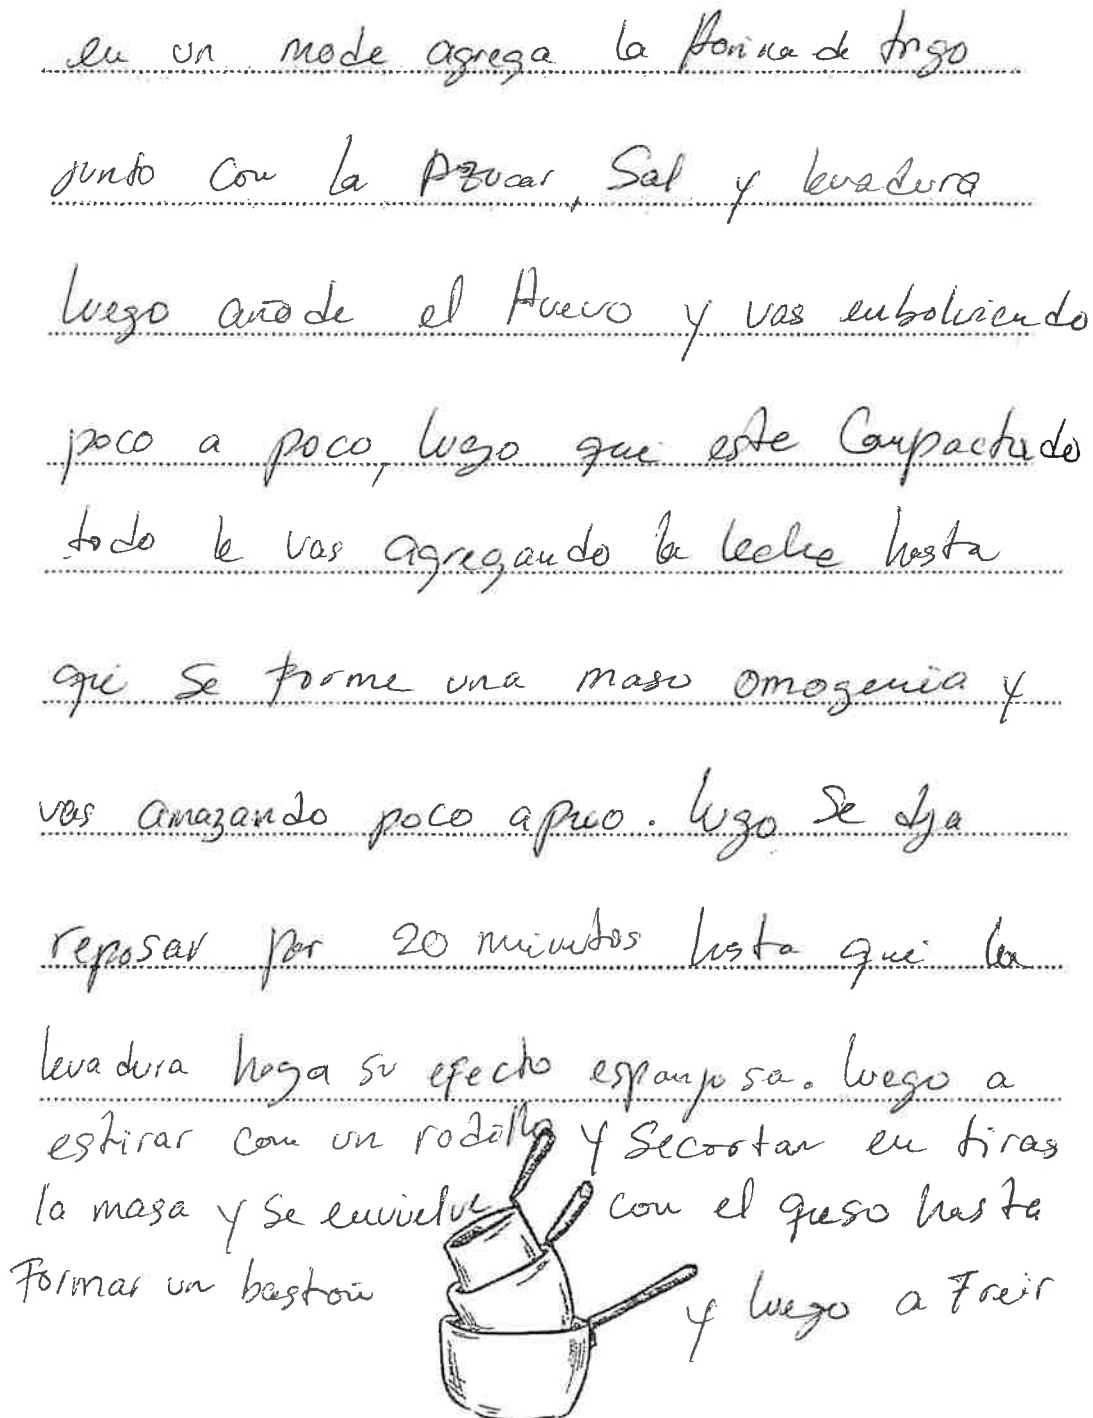 en un mode agrega la Harina de trigo
junto con la Azucar, Sal y levadura
luego añade el Huevo y vas enbolviendo
poco a poco, luego que este Compactado
todo le vas agregando la leche hasta
que se forme una masa omogenia y
vas amazando poco apoco. luego se deja
reposar por 20 minutos hasta que la
levadura haga su efecto esponjosa. luego a
estirar con un rodillo y Secortan en tiras
la masa y se envuelve con el queso hasta
Formar un baston y luego a Freir